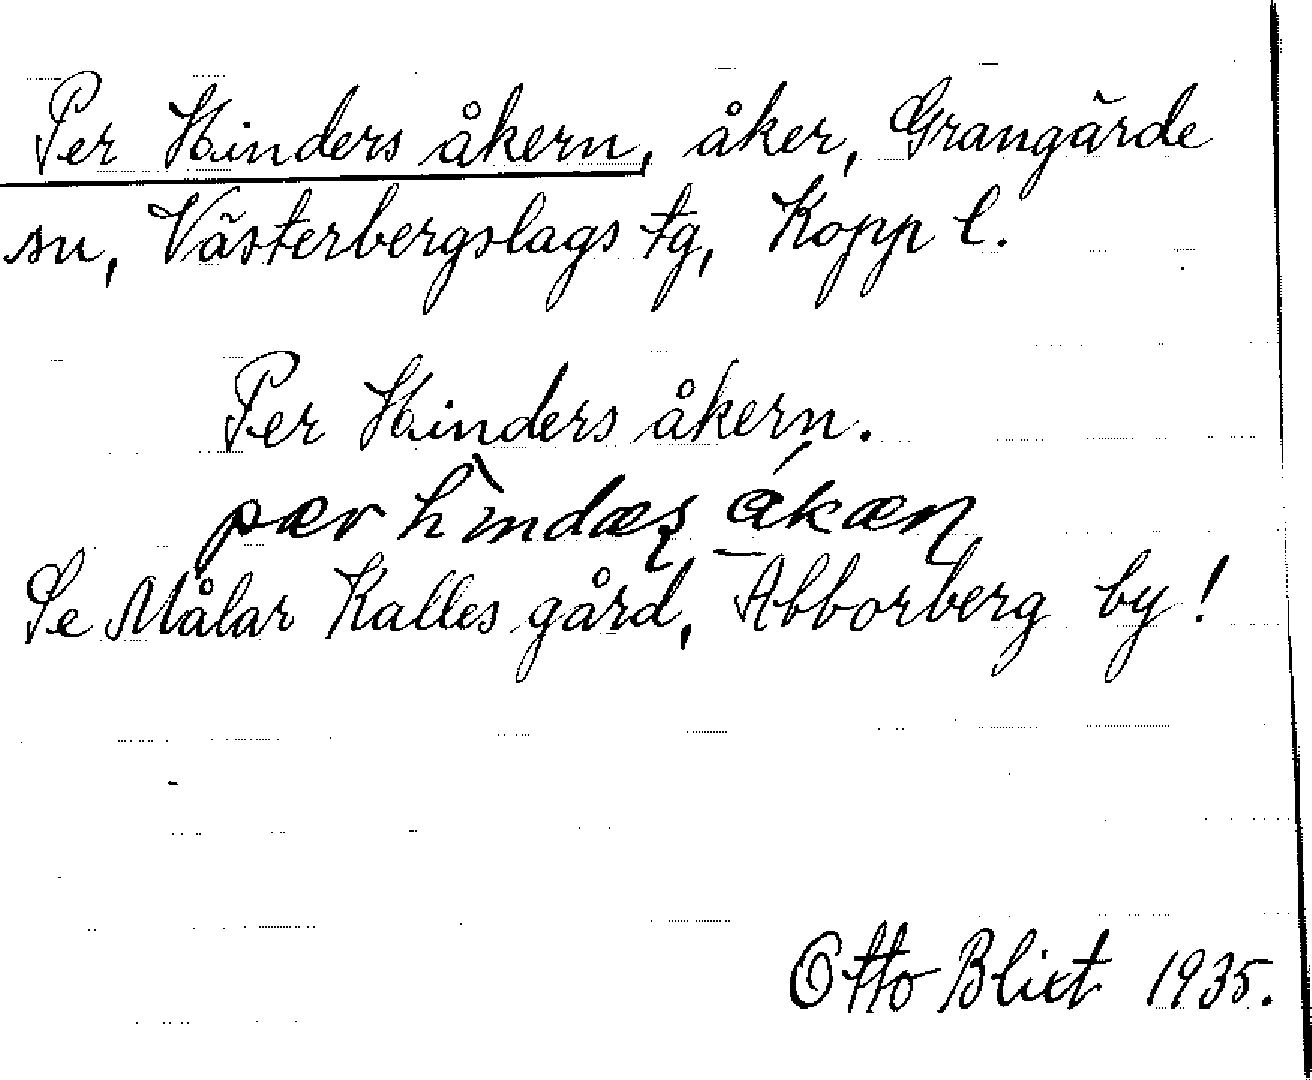 Per Hinders åkern, åker, Grangärde
sn, Västerbergslags tg, Kopp l.
Per Hinders åkern.
pær hìndæʂ åkæɳ
Se Målar Kalles gård, Abborberg by!
Otto Blixt 1935.